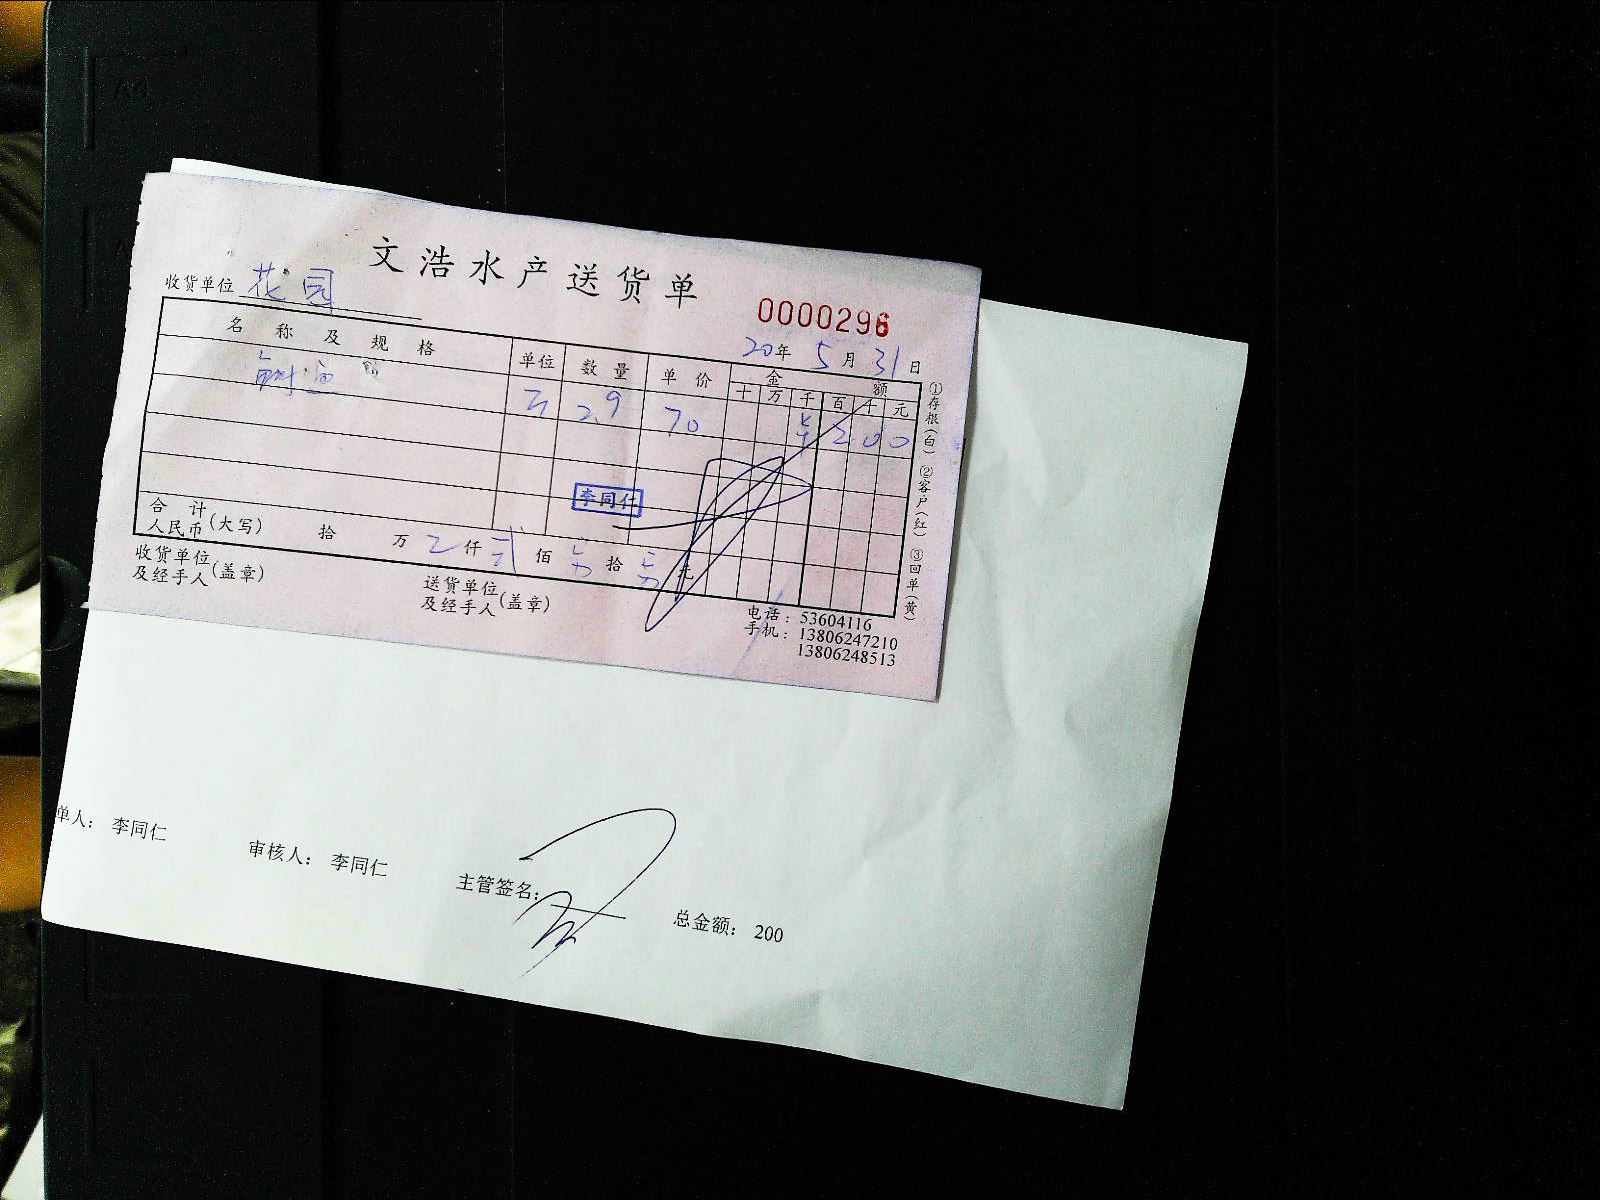 文浩水产送货单
收货单位 花园
0000296
20年5月31日
名称及规格 单位 数量 单价 金额
十 万 千 百 十 元
2.9 70 200
李同仁
合计
人民币(大写) 拾 万 仟 贰 佰 拾 元
收货单位
及经手人(盖章)
送货单位
及经手人(盖章)
电话：53604116
手机：13806247210
13806248513
①存根(白) ②客户(红) ③回单(黄)
单人： 李同仁 审核人： 李同仁 主管签名： 总金额： 200